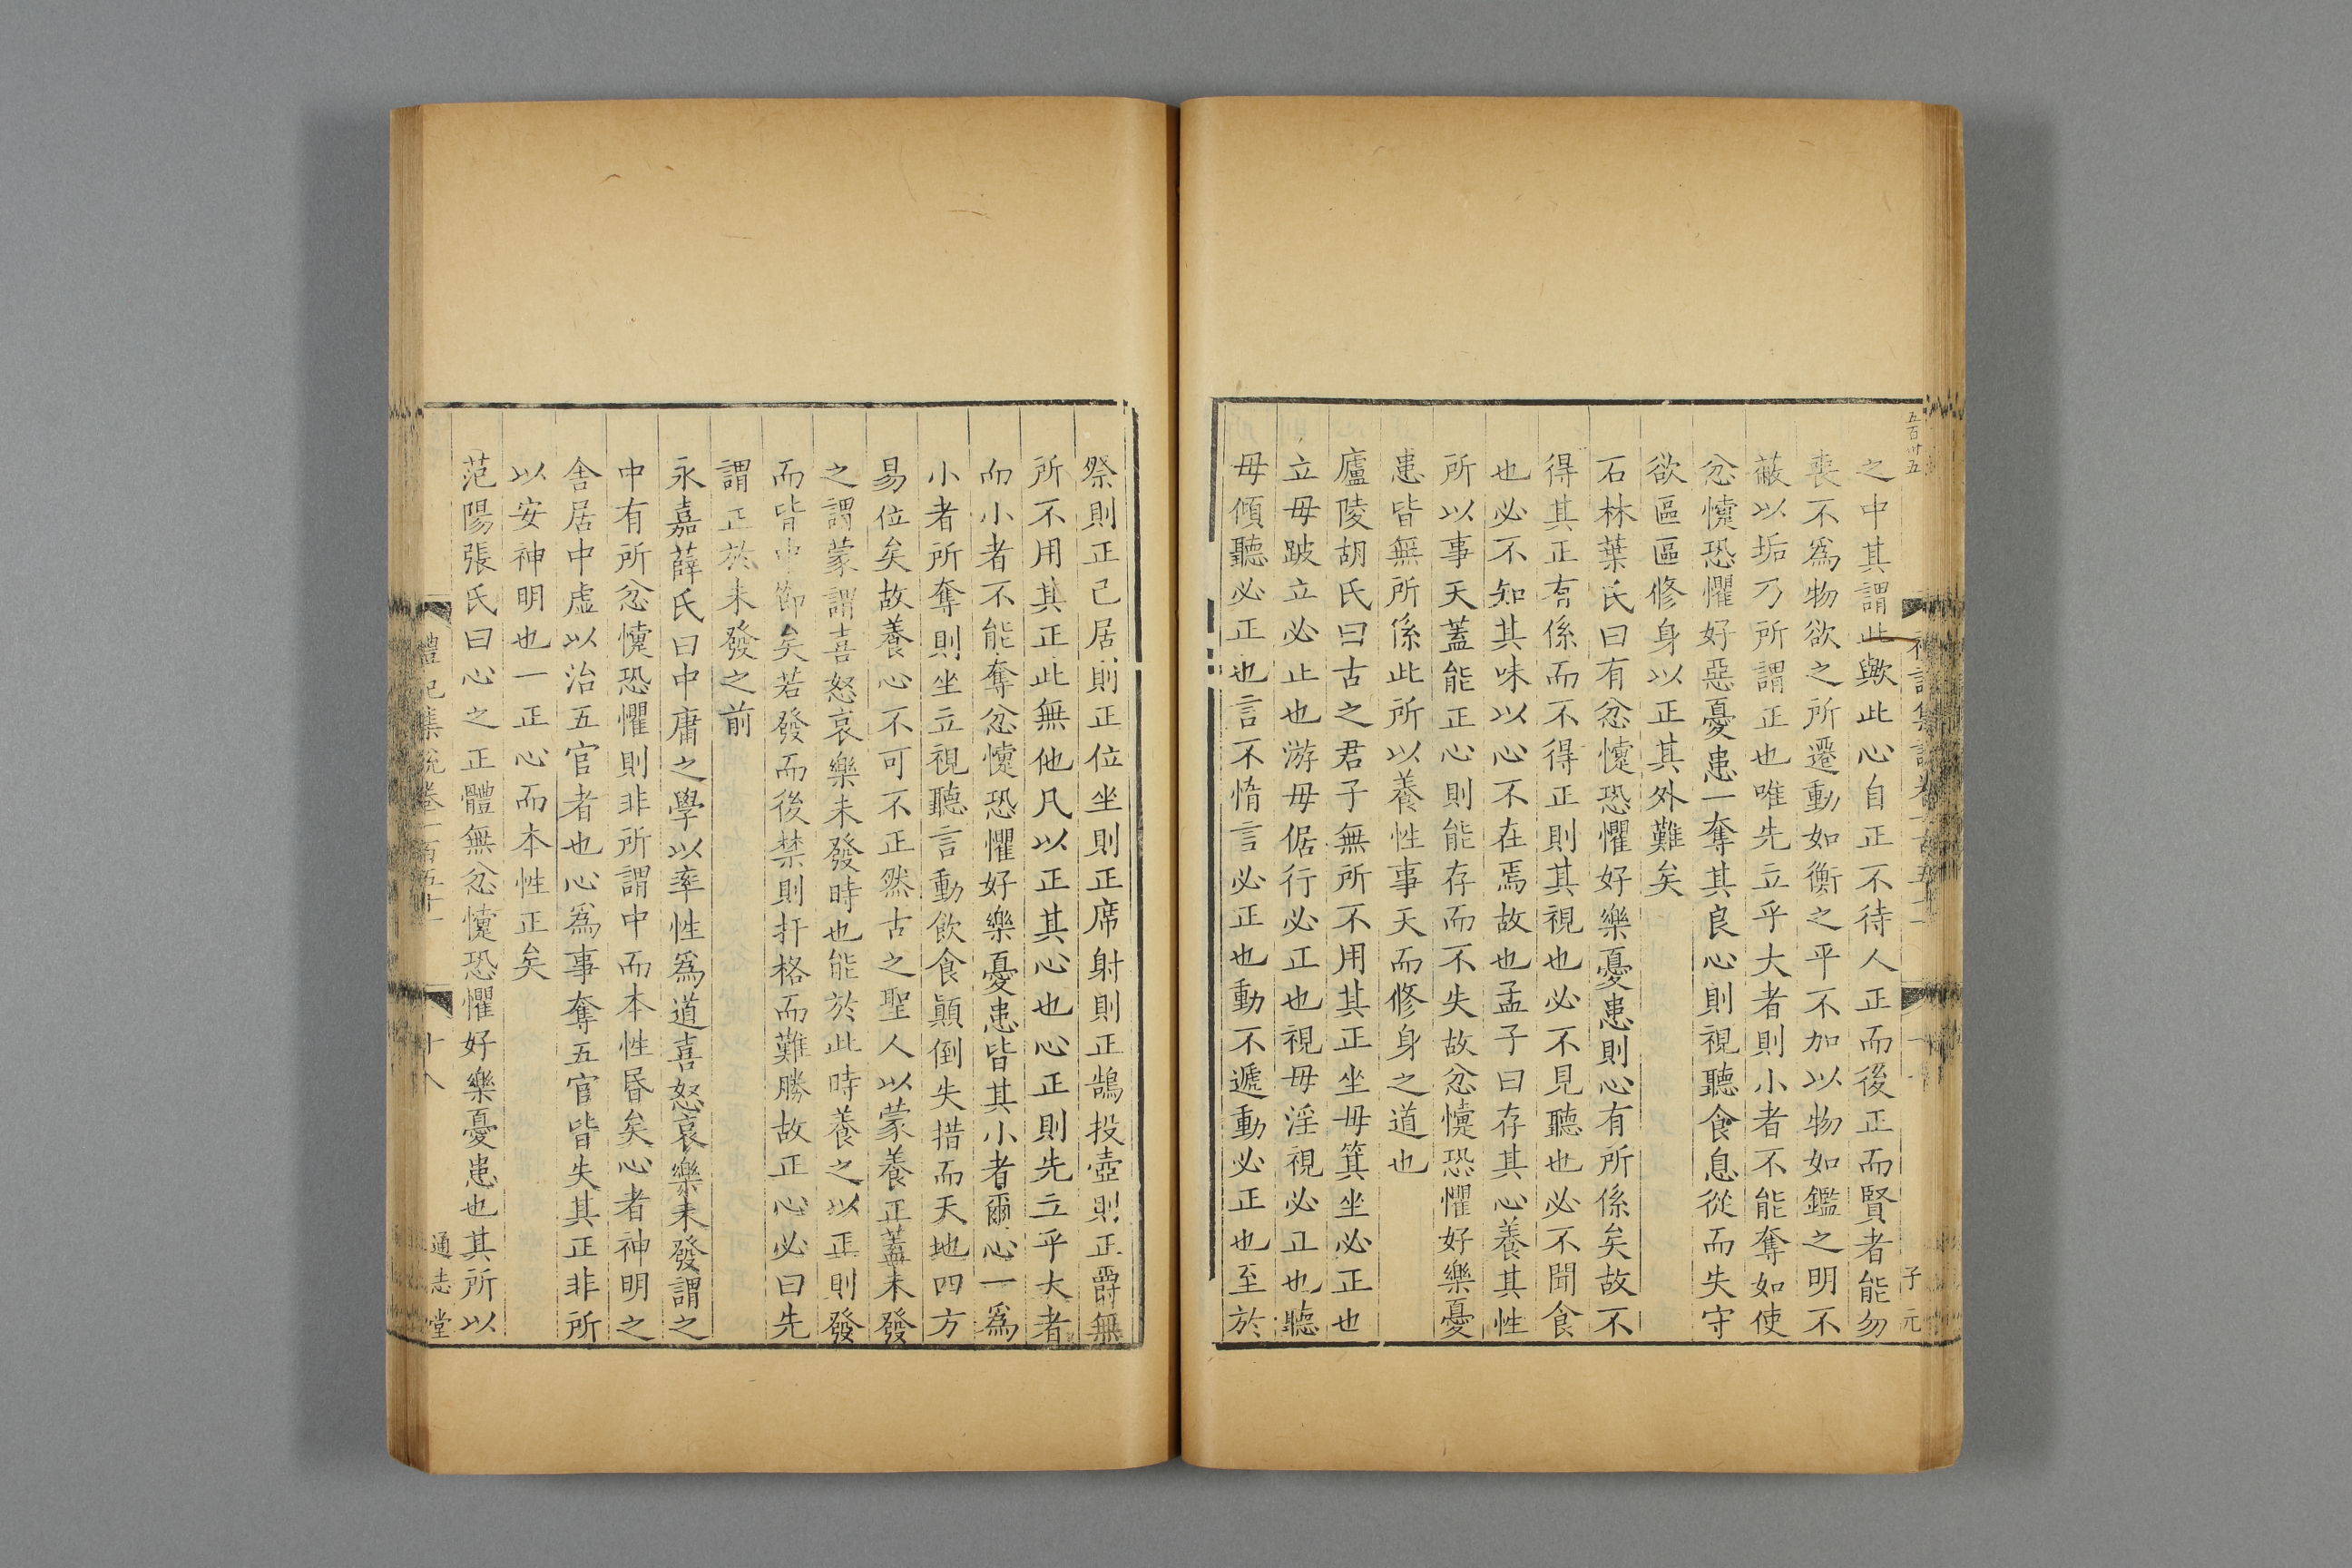 五百卅五
之中其謂此歟此心自正不待人正而後正而賢者能勿
喪不爲物欲之所遷動如衡之平不加以物如鑑之明不
蔽以垢乃所謂正也唯先立乎大者則小者不能奪如使
忿懥恐懼好惡憂患一奪其良心則視聽食息從而失守
欲區區修身以正其外難矣
石林葉氏曰有忿懥恐懼好樂憂患則心有所係矣故不
得其正有係而不得正則其視也必不見聽也必不聞食
也必不知其味以心不在焉故也孟子曰存其心養其性
所以事天蓋能正心則能存而不失故忿懥恐懼好樂憂
患皆無所係此所以養性事天而修身之道也
廬陵胡氏曰古之君子無所不用其正坐毋箕坐必正也
立毋跛立必止也游毋倨行必正也視毋淫視必正也聽
毋傾聽必正也言不惰言必正也動不遽動必正也至於
子元
祭則正己居則正位坐則正席射則正鵠投壺則正爵無
所不用其正此無他凡以正其心也心正則先立乎大者
而小者不能奪忿懥恐懼好樂憂患皆其小者爾心一爲
小者所奪則坐立視聽言動飲食顛倒失措而天地四方
易位矣故養心不可不正然古之聖人以蒙養正蓋未發
之謂蒙謂喜怒哀樂未發時也能於此時養之以正則發
而皆中節矣若發而後禁則扞格而難勝故正心必曰先
謂正於未發之前
永嘉薛氏曰中庸之學以率性爲道喜怒哀樂未發謂之
中有所忿懥恐懼則非所謂中而本性昏矣心者神明之
舍居中虛以治五官者也心爲事奪五官皆失其正非所
以安神明也一正心而本性正矣
范陽張氏曰心之正體無忿懥恐懼好樂憂患也其所以
禮記集說卷一百五十一
十八
通志堂